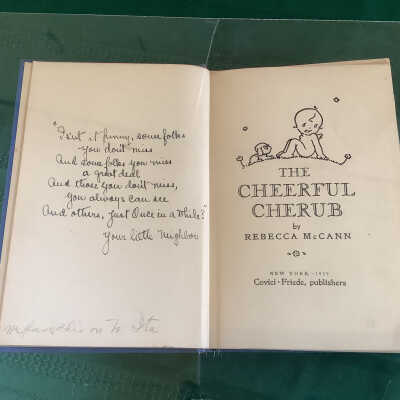 "Isn't it funny, some folks
you don't miss
And some folks you miss
a great deal
And those you don't miss,
you always can see
And others, just Once in a While?"
Your little Neighbor
on To
THE
CHEERFUL
CHERUB
by
REBECCA McCANN
NEW YORK
Covici · Friede, publishers